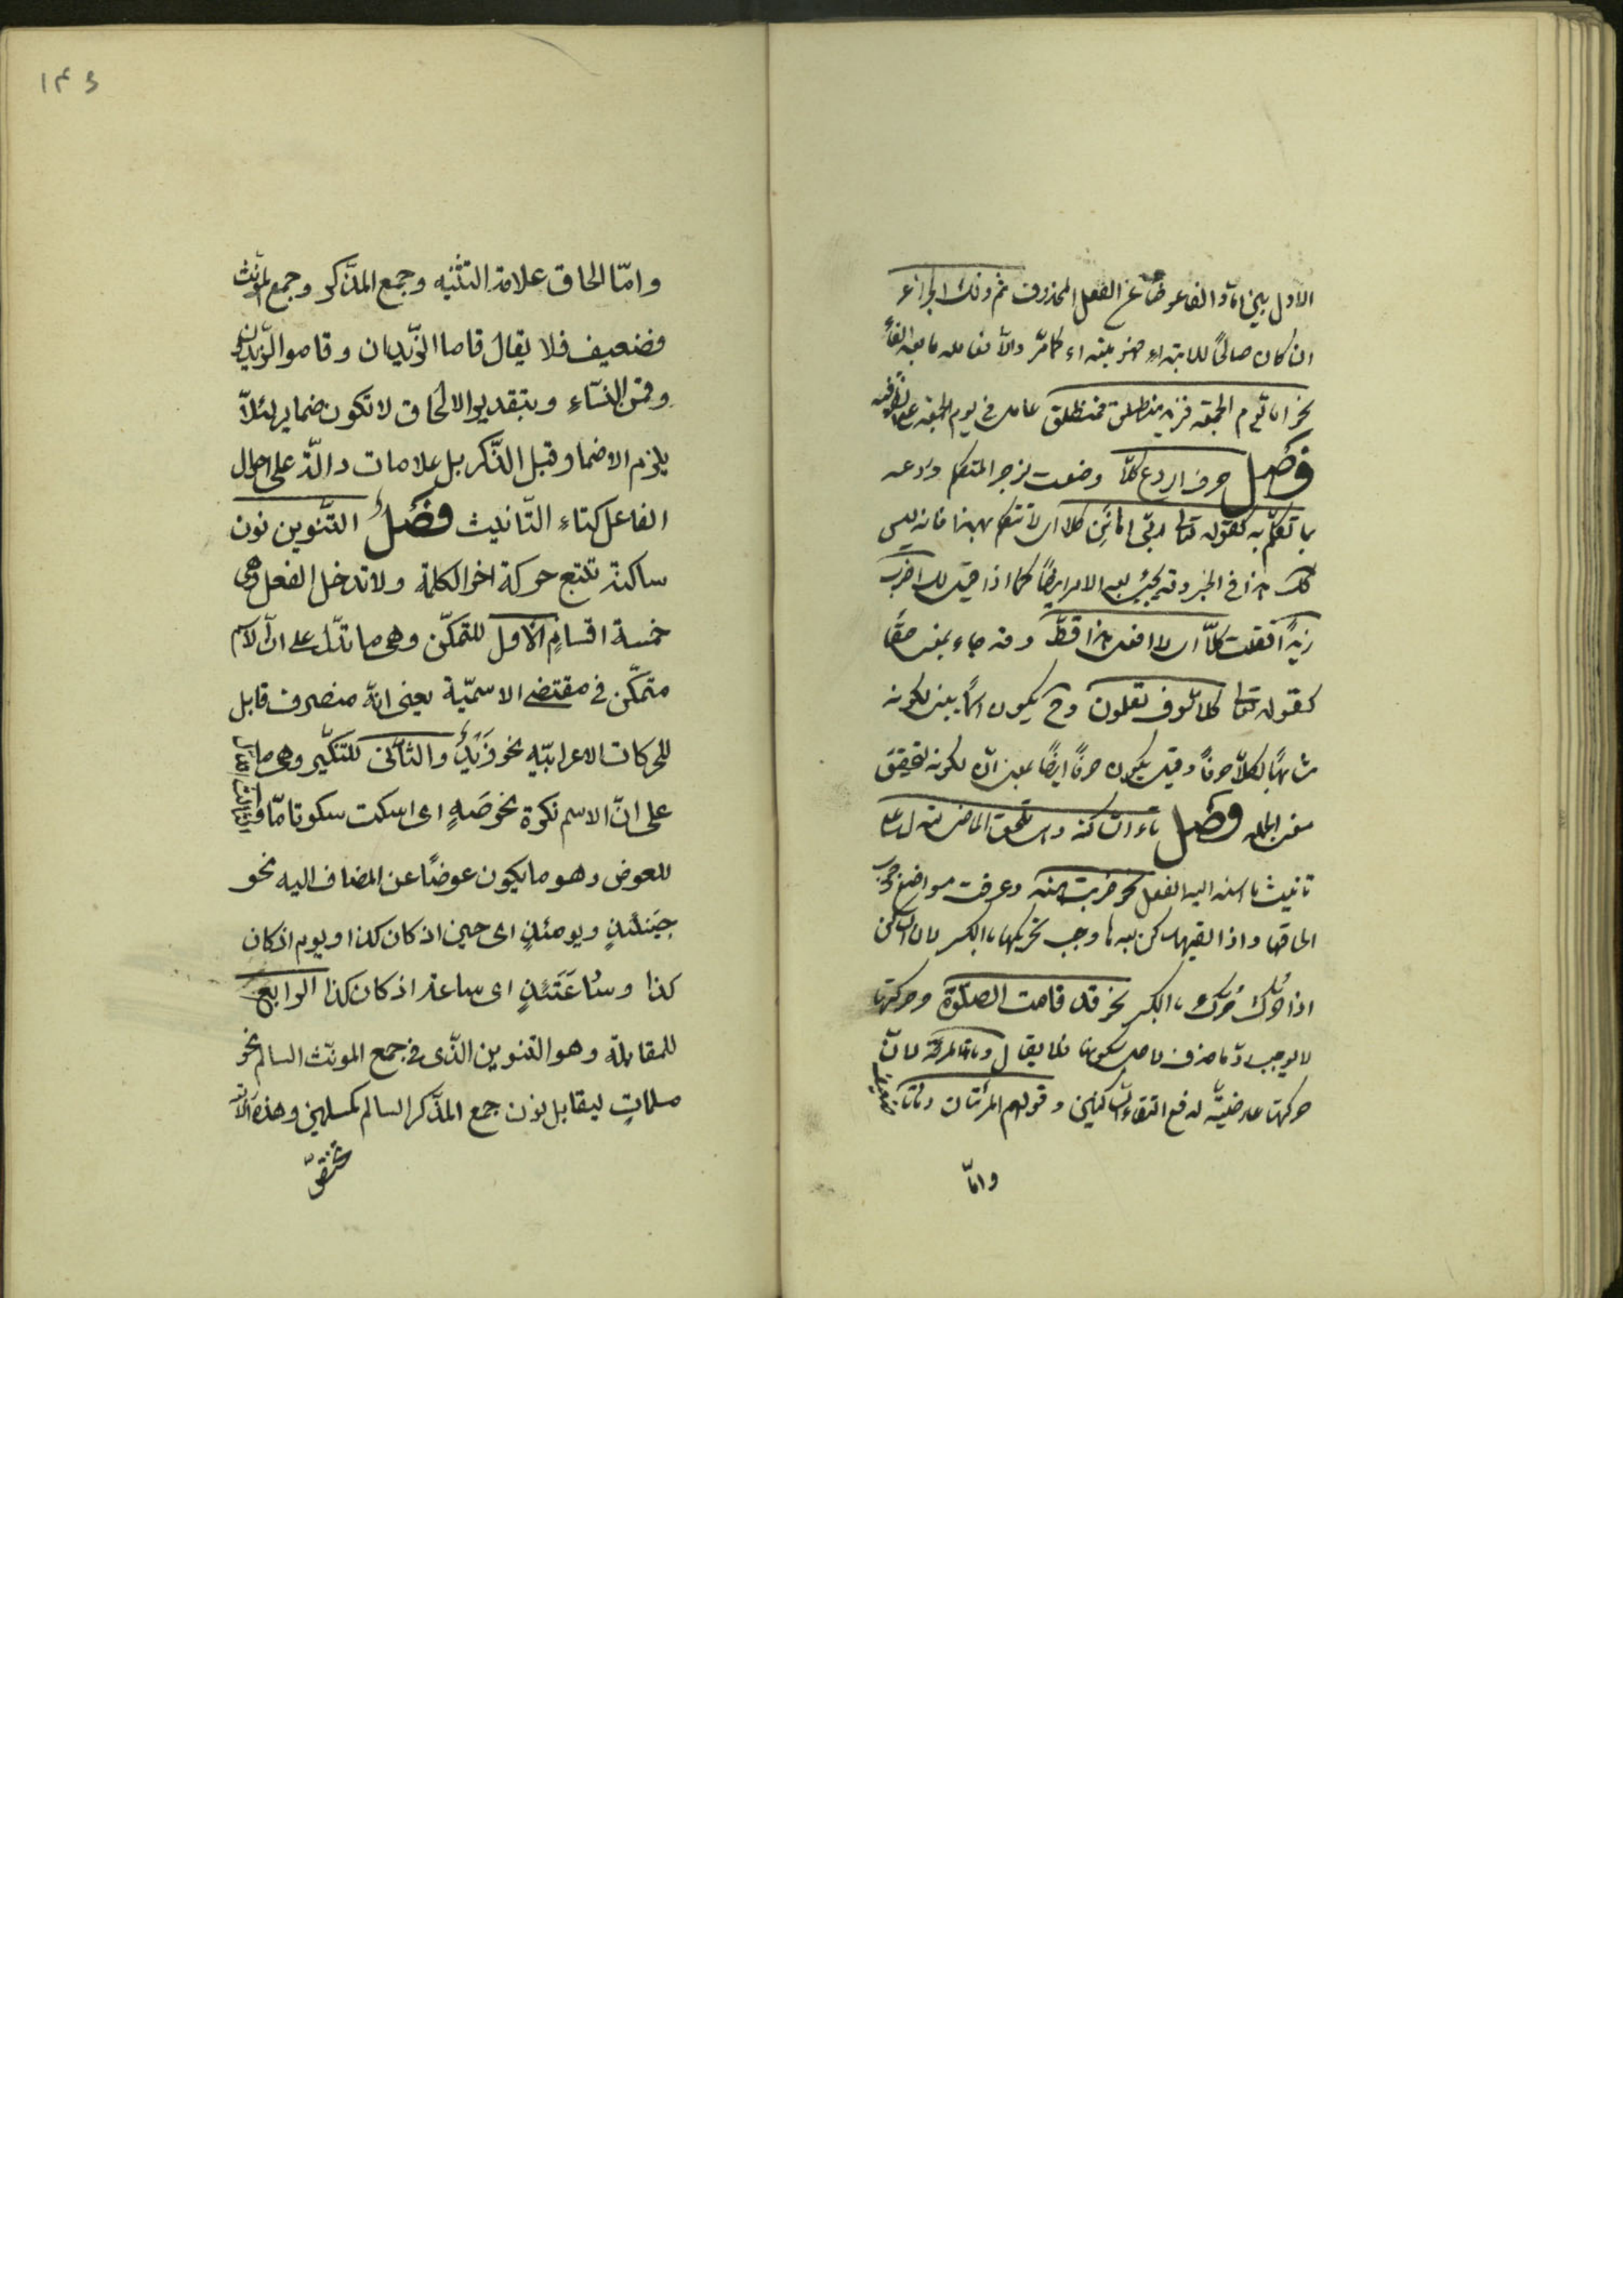 الاول بين امّا والفاء عوضًا عن الفعل المحذوف ثم ذلك الجزء
ان كان صالحًا للابتداء فهو مبتداء كما مرّ والّا فعامله ما بعد الفاء
نحو اما يوم الجمعة فزيد منطلق فمنطلق عامل فى يوم الجمعة على الظرفيه
فصل حرف الردع كلّا وضعت لزجر المتكلم وردعه
بما تكلّم به كقوله تعالى ربّى اهانن كلا اى لا تتكلم بهذا فانه ليس
كذلك هذا فى الخبر وقد يجئ بعد الامر ايضًا كما اذا قيل لك اضرب
زيدًا فقلت كلّا اى لا افعل هذا قطّ وقد جاء بمعنى حقًا
كقوله تعالى كلا سوف تعلمون وح يكون اسمًا يبنى لكونه
مشابهًا لكلّا حرفًا وقيل يكون حرفًا ايضًا بمعنى انّ لكونه لتحقيق
معنى الجمله فصل تاء التانيث الساكنه تلحق الماضى لتدل على
تانيث ما اسند اليه الفعل نحو ضربت هند وعرفت مواضع وجوب
الحاقها واذا لقيها ساكن بعدها وجب تحريكها بالكسر لان الساكن
اذا حُرّك حُرّك بالكسر نحو قد قامت الصلوة وحركتها
لا يوجب ردّ ما حذف لاجل سكونها فلا يقال رمات المرءة لانّ
حركتها عارضيّة لدفع التقاء الساكنين وقولهم المرئتان رماتا ضعيف
وامّا
١٤٥
وامّا الحاق علامة التثنيه وجمع المذّكر وجمع المونّث
فضعيف فلا يقال قاما الزّيدان وقاموا الزّيدون
وقمن النسّاء وبتقدير الالحاق لا تكون ضماير لئلّا
يلزم الاضمار قبل الذّكر بل علامات دالّة على احوال
الفاعل كتاء التّانيث فصلٌ التّنوين نون
ساكنة تتبع حركة اخر الكلمة ولا تدخل الفعل وهى
خمسة اقسامٍ الاول للتمكّن وهى ما تدّل على انّ الاسم
متمكّن فى مقتضى الاسميّة يعنى انّه منصرف قابل
للحركات الاعرابيّه نحو زَيْدٌ والثانى للتنكّير وهى ما تدل
على انّ الاسم نكرة نحو صَهٍ اى اسكت سكوتا مّا والثالث
للعوض وهو ما يكون عوضًا عن المضاف اليه نحو
حِيَنئذٍ ويومئذٍ اى حين اذ كان كذا ويوم اذ كان
كذا وسُاعَتَئذٍ اى ساعة اذ كان كذا الرابع
للمقابلة وهو التنوين الذّى فى جمع المونّث السالم نحو
مسلماتٍ ليقابل نون جمع المذّكر السالم كمسلمين وهذه الاربعة
تختصّ